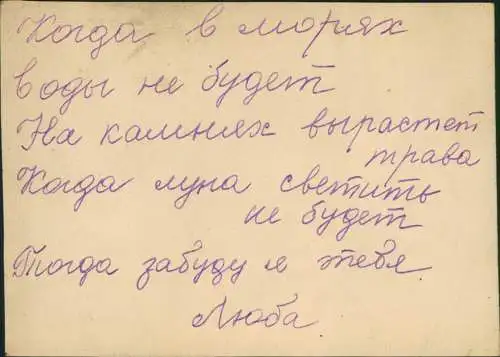 Когда в морях
воды не будет
На камнях вырастет
трава
Когда луна светить
не будет
Тогда забуду я тебя
Люба